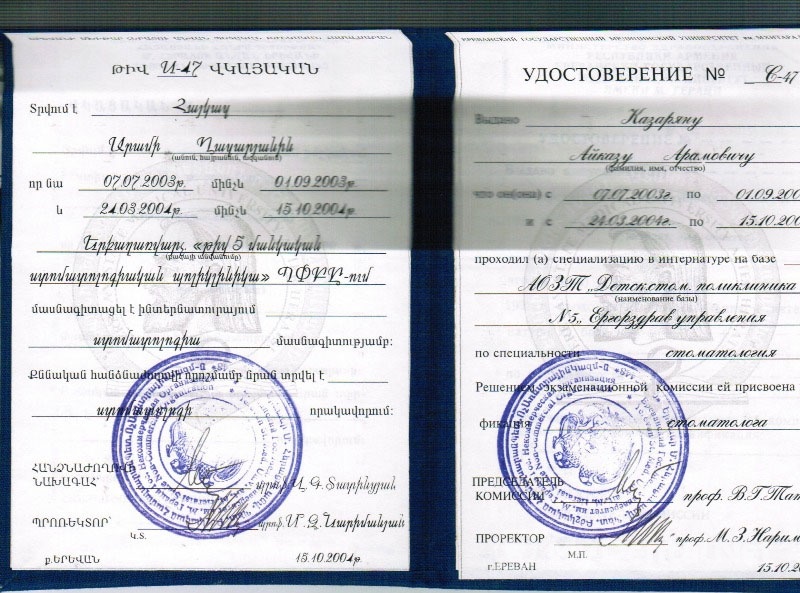 ԹԻՎ Ա-47 ՎԿԱՅԱԿԱՆ
Տրվում է Հայկազ
Արամի Ղազարյանին
(անուն, հայրանուն, ազգանուն)
որ նա 07.07.2003թ. մինչև 01.09.2003թ.
և 24.03.2004թ. մինչև 15.10.2004թ.
Երքաղառվարչ. «թիվ 5 մանկական
(բազայի անվանումը)
ստոմատոլոգիական պոլիկլինիկա» ՊՓԲԸ-ում
մասնագիտացել է ինտերնատուրայում
ստոմատոլոգիա մասնագիտությամբ:
Քննական հանձնաժողովի որոշմամբ նրան տրվել է
ստոմատոլոգի որակավորում:
ՀԱՆՁՆԱԺՈՂՈՎԻ
ՆԱԽԱԳԱՀ
ՊՐՈՌԵԿՏՈՐ
Կ.Տ.
ք.ԵՐԵՎԱՆ 15.10.2004թ.
ЕРЕВАНСКИЙ ГОСУДАРСТВЕННЫЙ МЕДИЦИНСКИЙ УНИВЕРСИТЕТ им МХИТАРА
УДОСТОВЕРЕНИЕ № С-47
Выдано Казаряну
Айказу Арамовичу
(фамилия, имя, отчество)
что он(она) с 07.07.2003г. по 01.09.200
и с 24.03.2004г. по 15.10.200
проходил (а) специализацию в интернатуре на базе
АОЗТ „Детск.стом. поликлиника
(наименование базы)
N5„ Ергорздрав управления
по специальности стоматология
Решением экзаменационной комиссии ей присвоена
фикация стоматолога
ПРЕДСЕДАТЕЛЬ
КОМИССИИ проф. В.Г.Тат
ПРОРЕКТОР проф. М.З.Нарим
М.П.
г.ЕРЕВАН 15.10.20